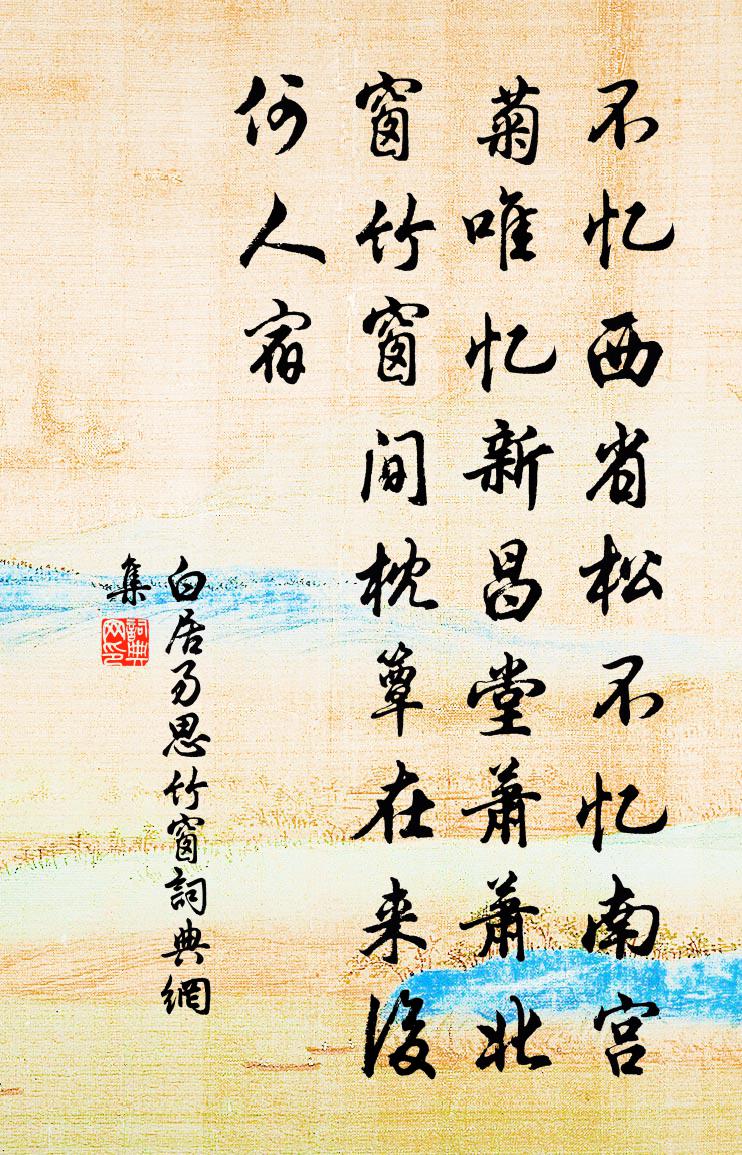 不忆西省松不忆南宫
菊唯忆新昌堂萧萧北
窗竹窗间枕簟在来後
何人宿
白居易思竹窗詞典網
集